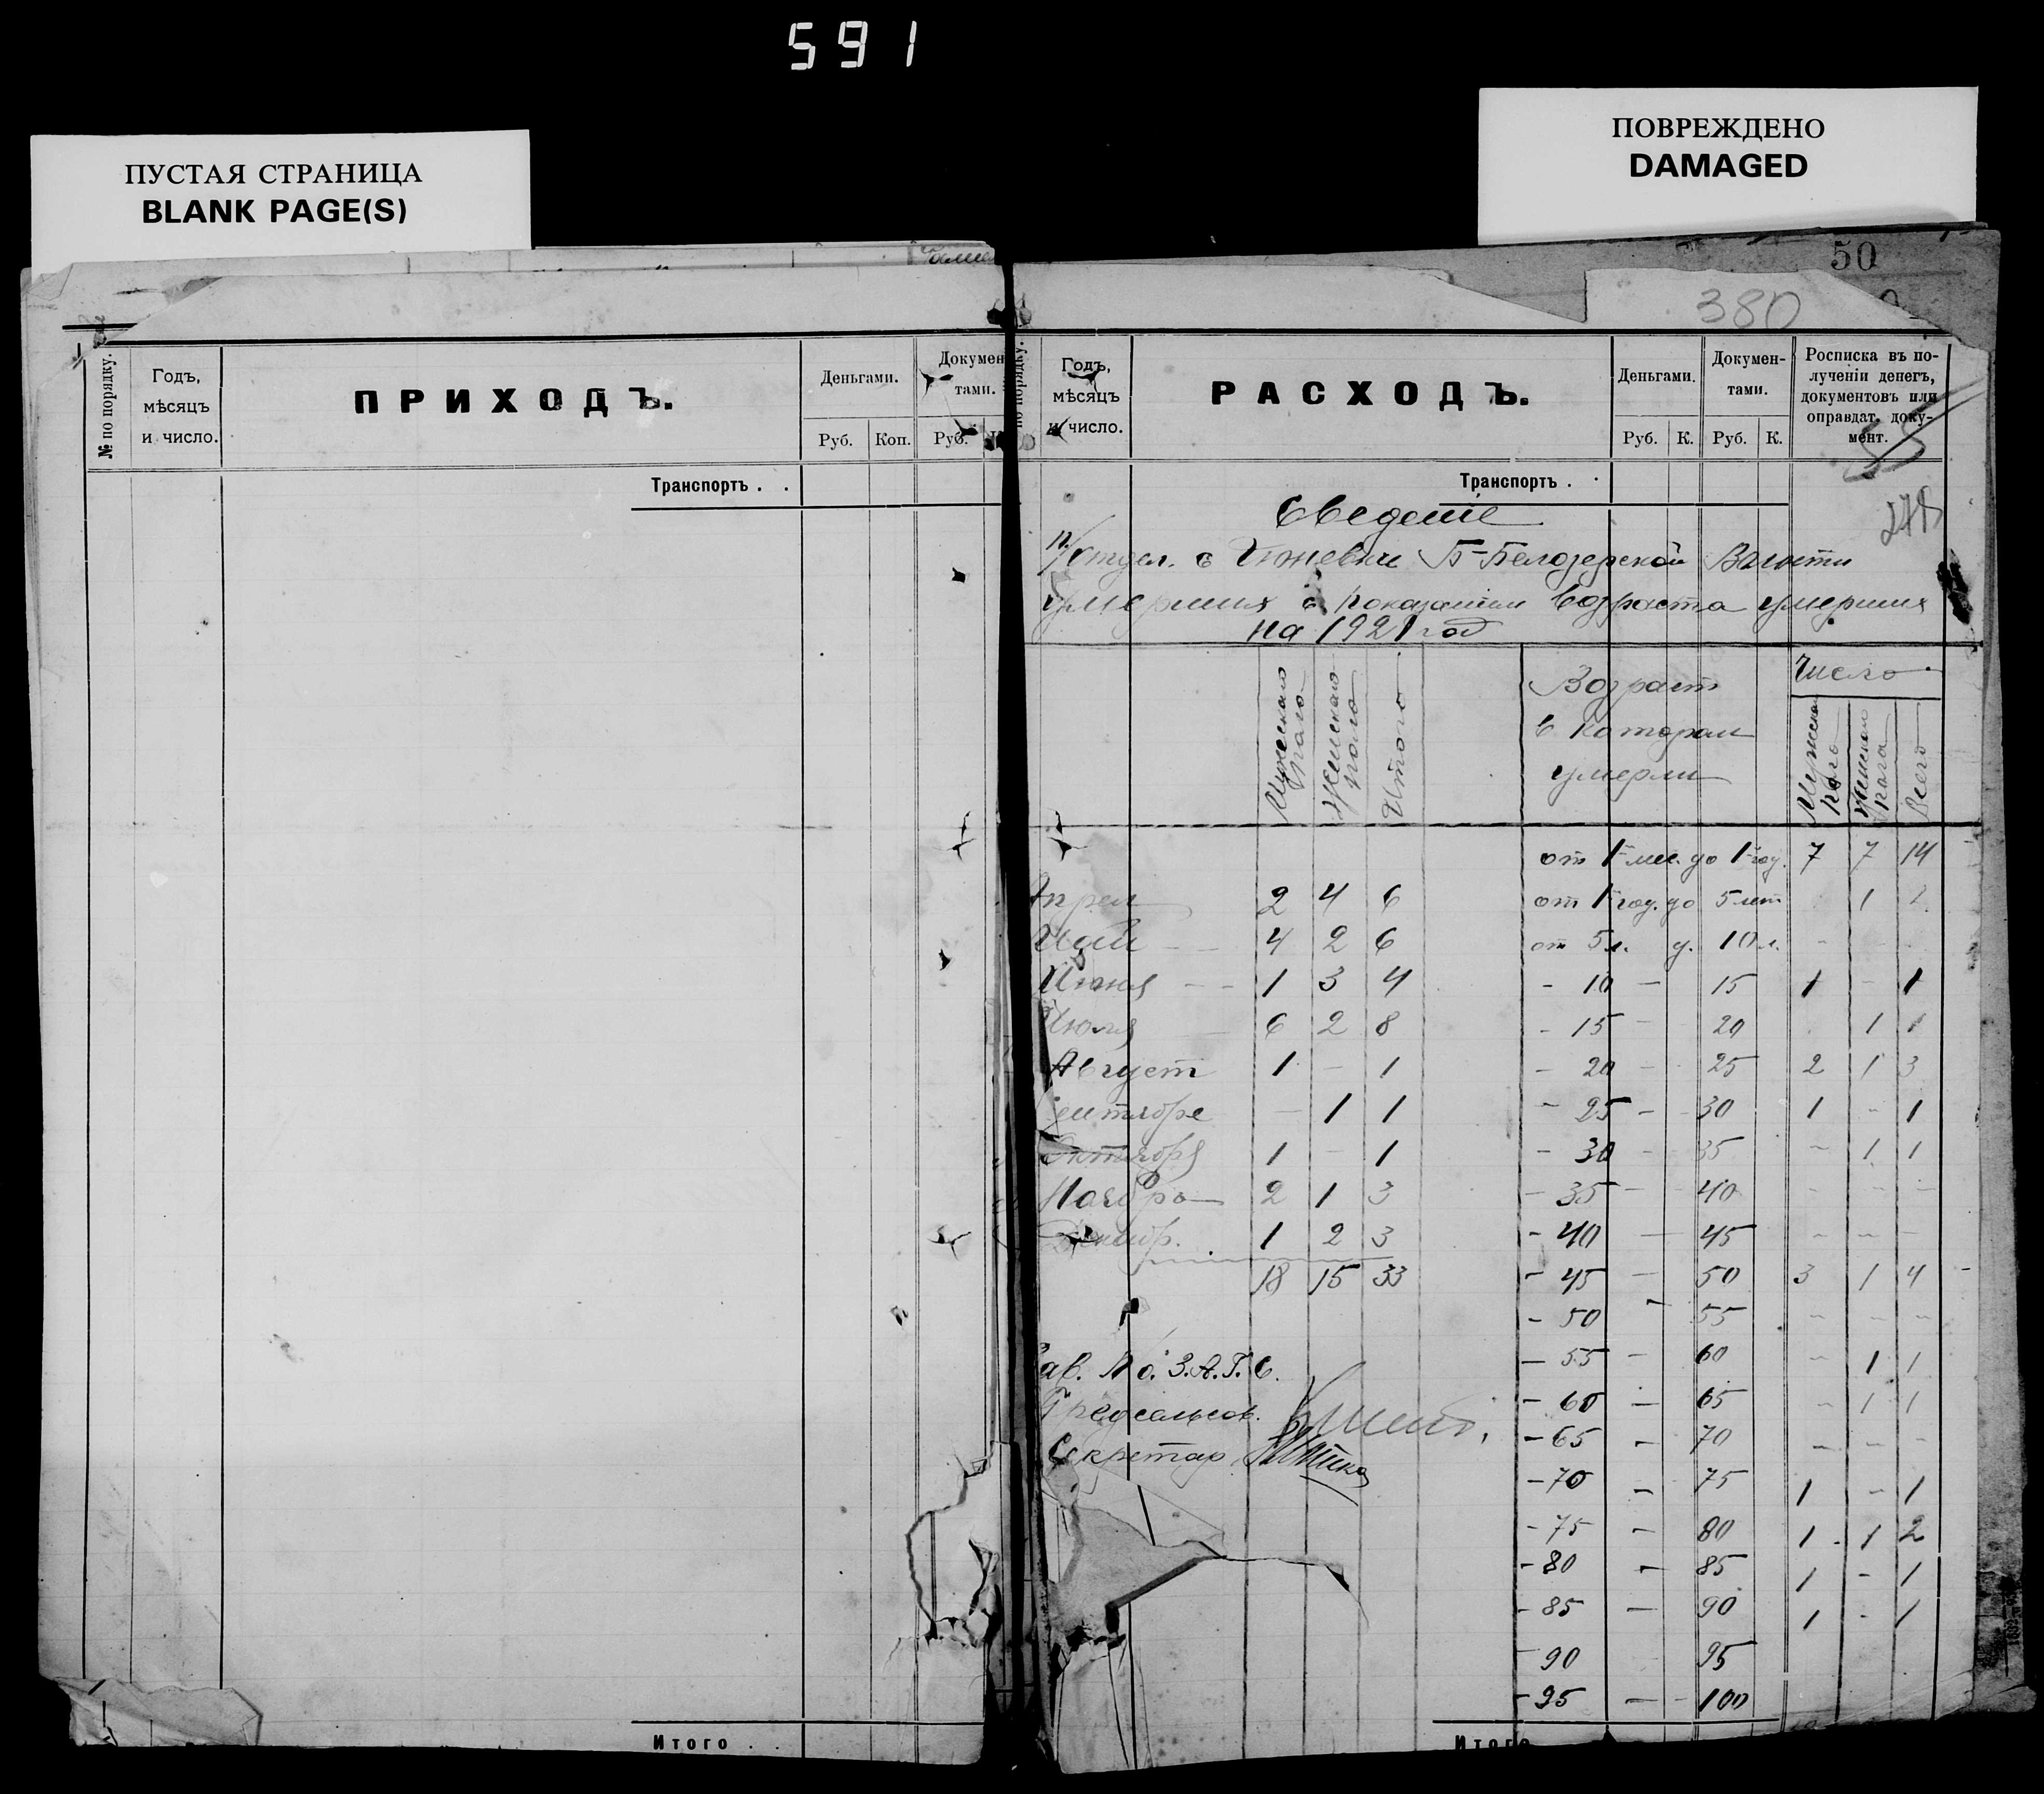 591
ПУСТАЯ СТРАНИЦА
BLANK PAGE(S)
ПОВРЕЖДЕНО
DAMAGED
№ по порядку.
Годъ, мѣсяцъ и число.
ПРИХОДЪ.
Деньгами.
Руб. Коп.
Докумен
тами.
Руб.
Транспортъ . .
Итого . .
50
380
по порядку.
Годъ, мѣсяцъ и число.
РАСХОДЪ.
Деньгами.
Руб. К.
Докумен-
тами.
Руб. К.
Росписка въ по-
лученіи денегъ,
документовъ или
оправдат. доку-
мент.
55
278
Транспортъ . .
Сведение
п/отдел. с Б-Белозерской Волости
умерших с показанием возраста умерших
на 1921 год
Мужского пола Женского пола Итого
Возраст в котором умерли
Число
Мужского пола Женского пола Всего
от 1 мес. до 1 год. 7 7 14
Апрел 2 4 6 от 1 год. до 5 лет 1 1
Май - - 4 2 6 от 5 л. д. 10 л. - - -
Июня - - 1 3 4 - 10 - 15 1 - 1
Июля - 6 2 8 - 15 - 20 1 1
Август 1 - 1 - 20 - 25 2 1 3
ентябре - 1 1 - 25 - 30 1 - 1
Октября 1 - 1 - 30 - 35 - 1 1
Ноября 2 1 3 - 35 - 40 - - -
Декабр. 1 2 3 - 40 - 45 - - -
18 15 33 - 45 - 50 3 1 4
- 50 - 55 - - -
Зав. По. З.А.Г.С. - 55 - 60 - 1 1
Предсельсов. - 60 - 65 - 1 1
Секретар - 65 - 70 - - -
- 70 - 75 1 - 1
- 75 - 80 1 - 1 2
- 80 - 85 1 - 1
- 85 - 90 1 - 1
90 95
- 95 - 100
Итого